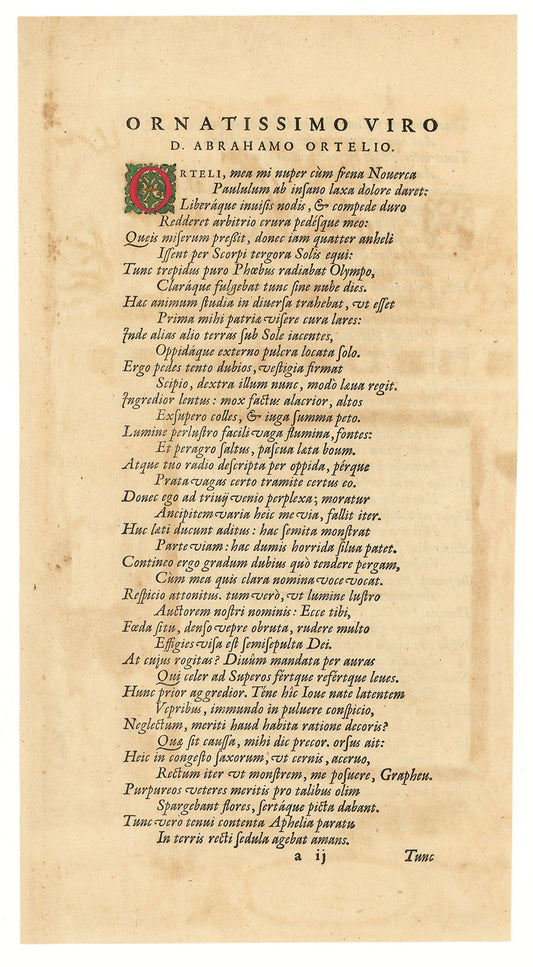 ORNATISSIMO VIRO
D. ABRAHAMO ORTELIO.
ORTELI, mea mi nuper cùm frena Nouerca
Paululum ab inſano laxa dolore daret:
Liberáque inuiſis nodis, & compede duro
Redderet arbitrio crura pedéſque meo:
Queîs miſerum preßit, donec iam quatter anheli
Iſſent per Scorpi tergora Solis equi:
Tunc trepidus puro Phœbus radiabat Olympo,
Claráque fulgebat tunc ſine nube dies.
Hac animum ſtudia in diuerſa trahebat, vt eſſet
Prima mihi patriæ viſere cura lares:
Inde alias alio terras ſub Sole iacentes,
Oppidáque externo pulcra locata ſolo.
Ergo pedes tento dubios, veſtigia firmat
Scipio, dextra illum nunc, modò læua regit.
Ingredior lentus: mox factus alacrior, altos
Exſupero colles, & iuga ſumma peto.
Lumine perluſtro facili vaga flumina, fontes:
Et peragro ſaltus, paſcua læta boum.
Atque tuo radio deſcripta per oppida, pérque
Prata vagas certo tramite certus eo.
Donec ego ad triuij venio perplexa; moratur
Ancipitem varia heic me via, fallit iter.
Huc læti ducunt aditus: hac ſemita monſtrat
Parte viam: hac dumis horrida ſilua patet.
Contineo ergo gradum dubius quò tendere pergam,
Cùm mea quis clara nomina voce vocat.
Reſpicio attonitus. tum verò, vt lumine luſtro
Auctorem noſtri nominis: Ecce tibi,
Fœda ſitu, denſo vepre obruta, rudere multo
Effigies viſa eſt ſemiſepulta Dei.
At cujus rogitas? Diuûm mandata per auras
Qui celer ad Superos fértque refértque leues.
Hunc prior aggredior. Téne hîc Ioue nate latentem
Vepribus, immundo in puluere conſpicio,
Neglectum, meriti haud habita ratione decoris?
Quæ ſit cauſſa, mihi dic precor. orſus ait:
Heic in congeſto ſaxorum, vt cernis, aceruo,
Rectum iter vt monſtrem, me poſuere, Grapheu.
Purpureos veteres meritis pro talibus olim
Spargebant flores, ſertáque picta dabant.
Tunc vero tenui contenta Aphelia paratu
In terris recti ſedula agebat amans.
a ij Tunc